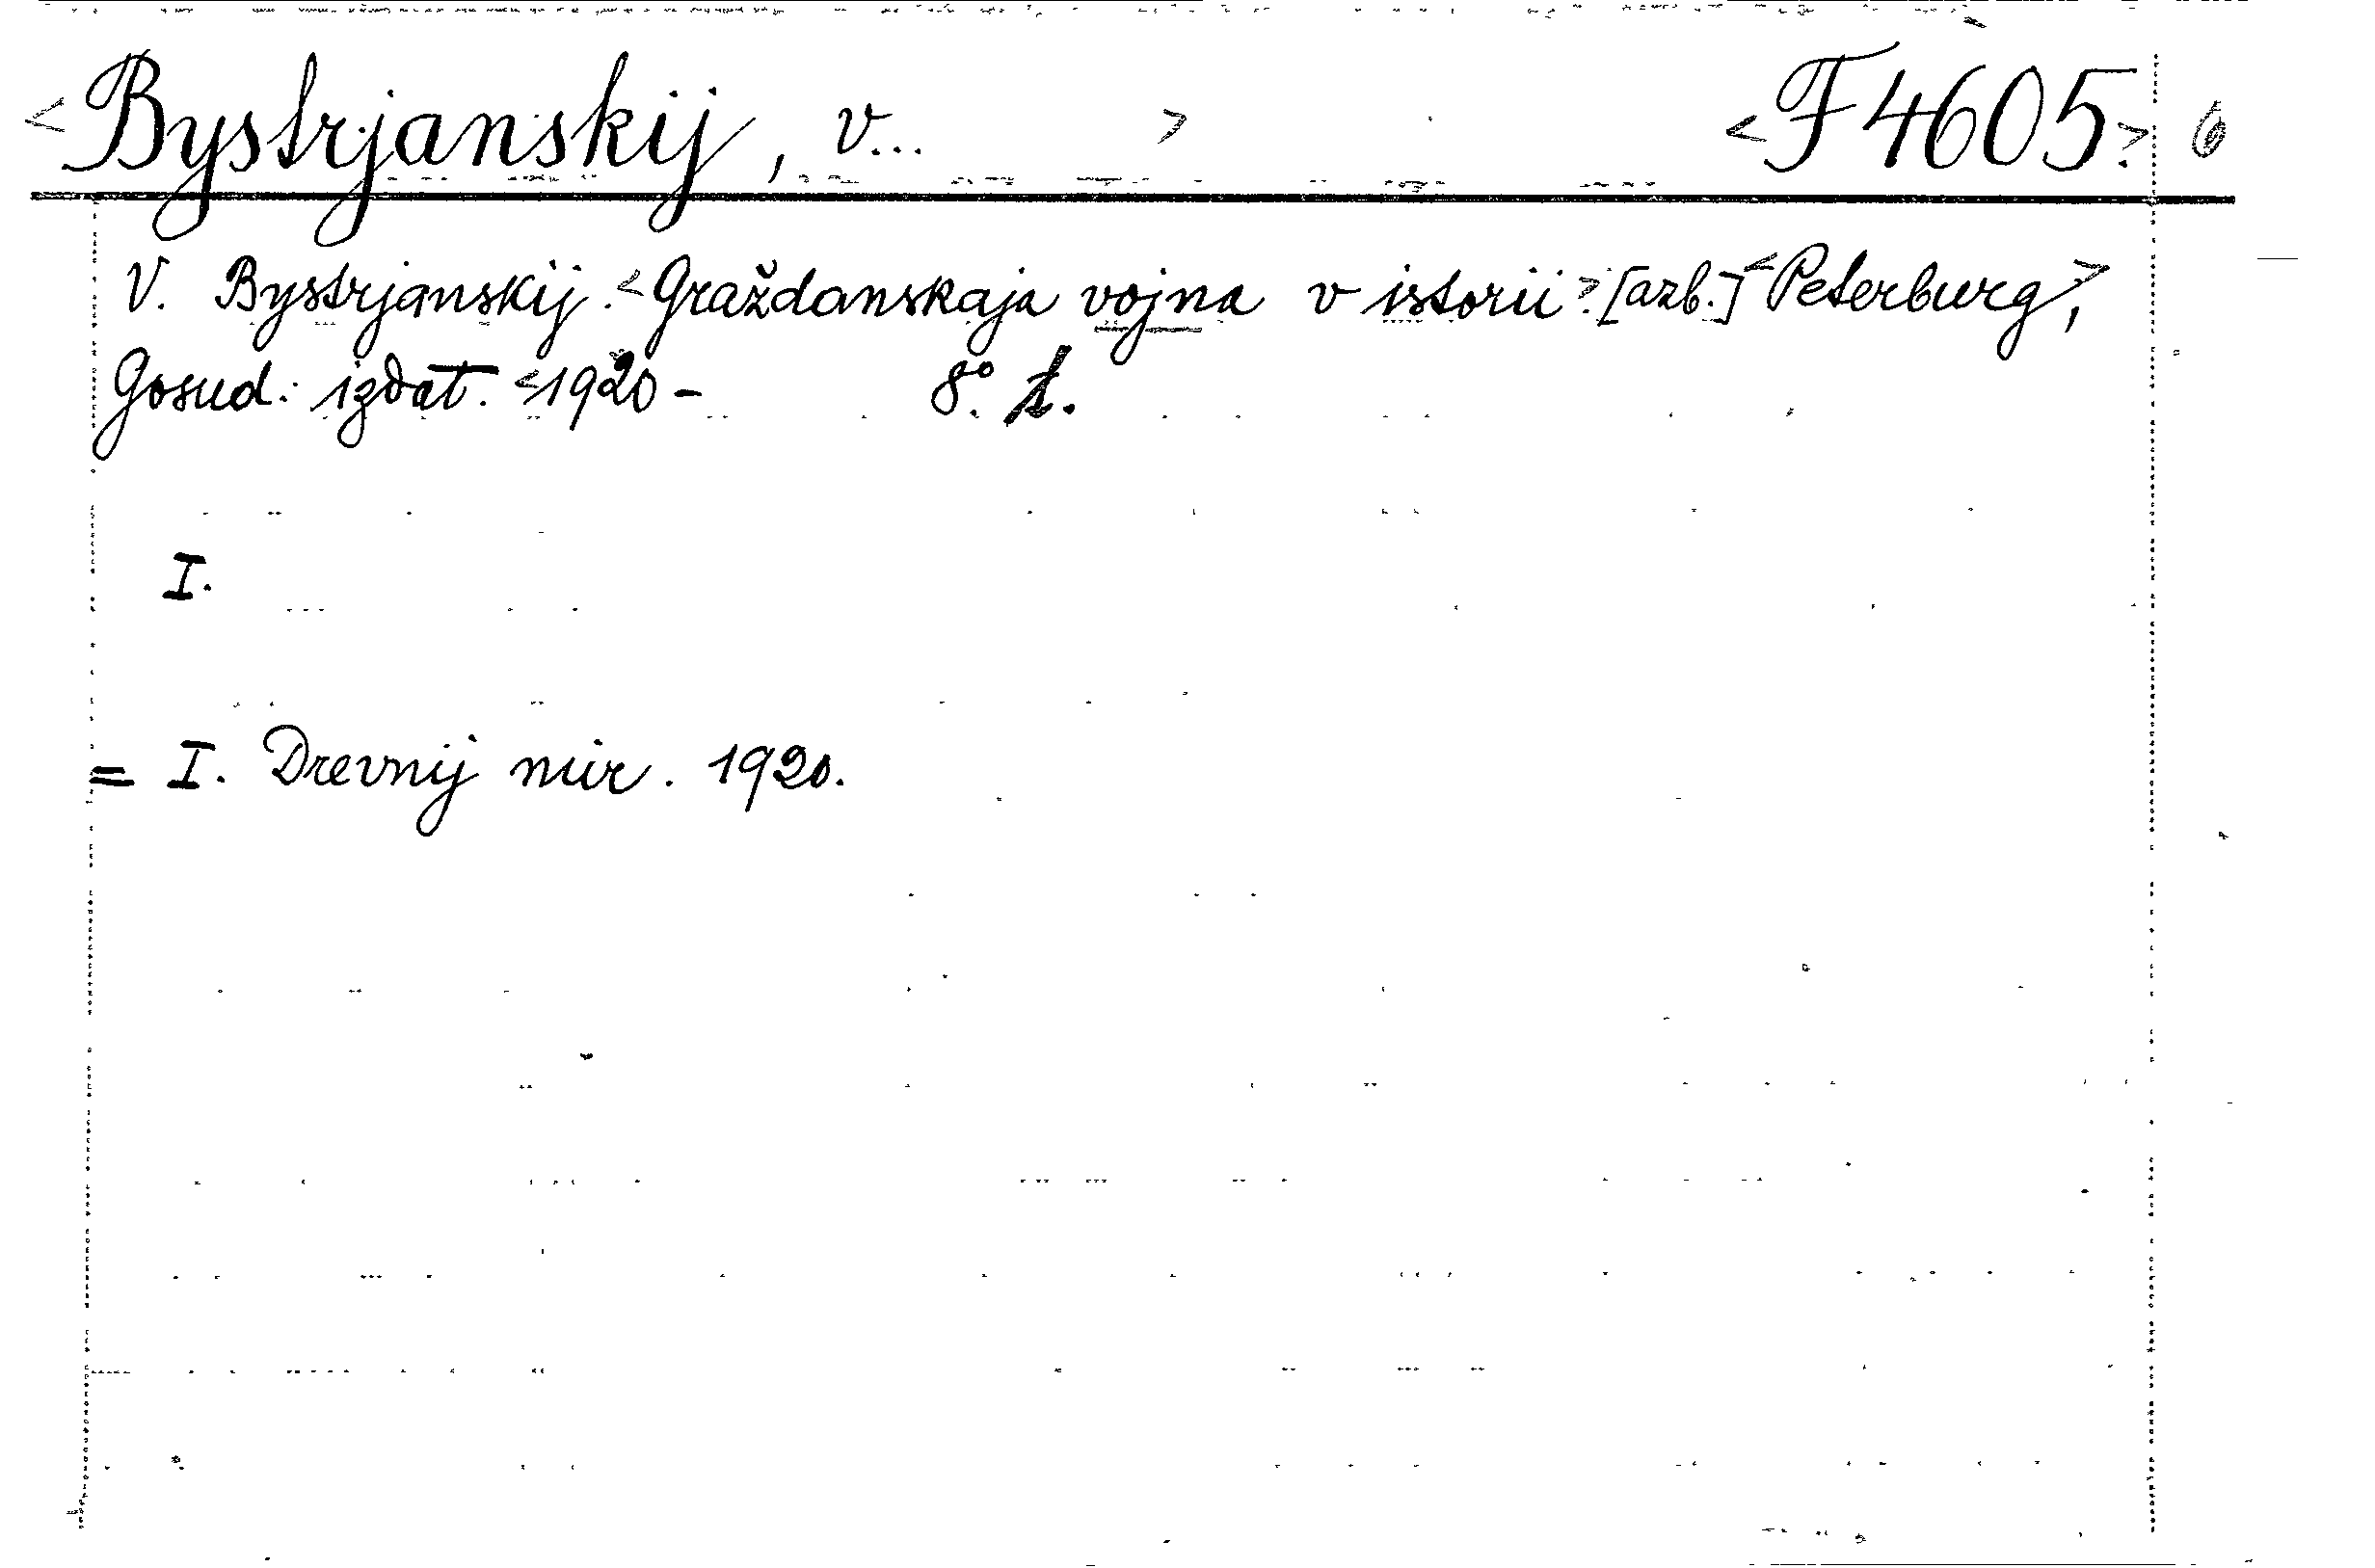 <Bystrjanskij, V... > <F 4605.> 6
V. Bystrjanskij. <Graždanskaja vojna v istorii>. [azb.] <Peterburg>,
Gosud. izdat. <1920 - 8°.
I.
= I. Drevnij mir. 1920.